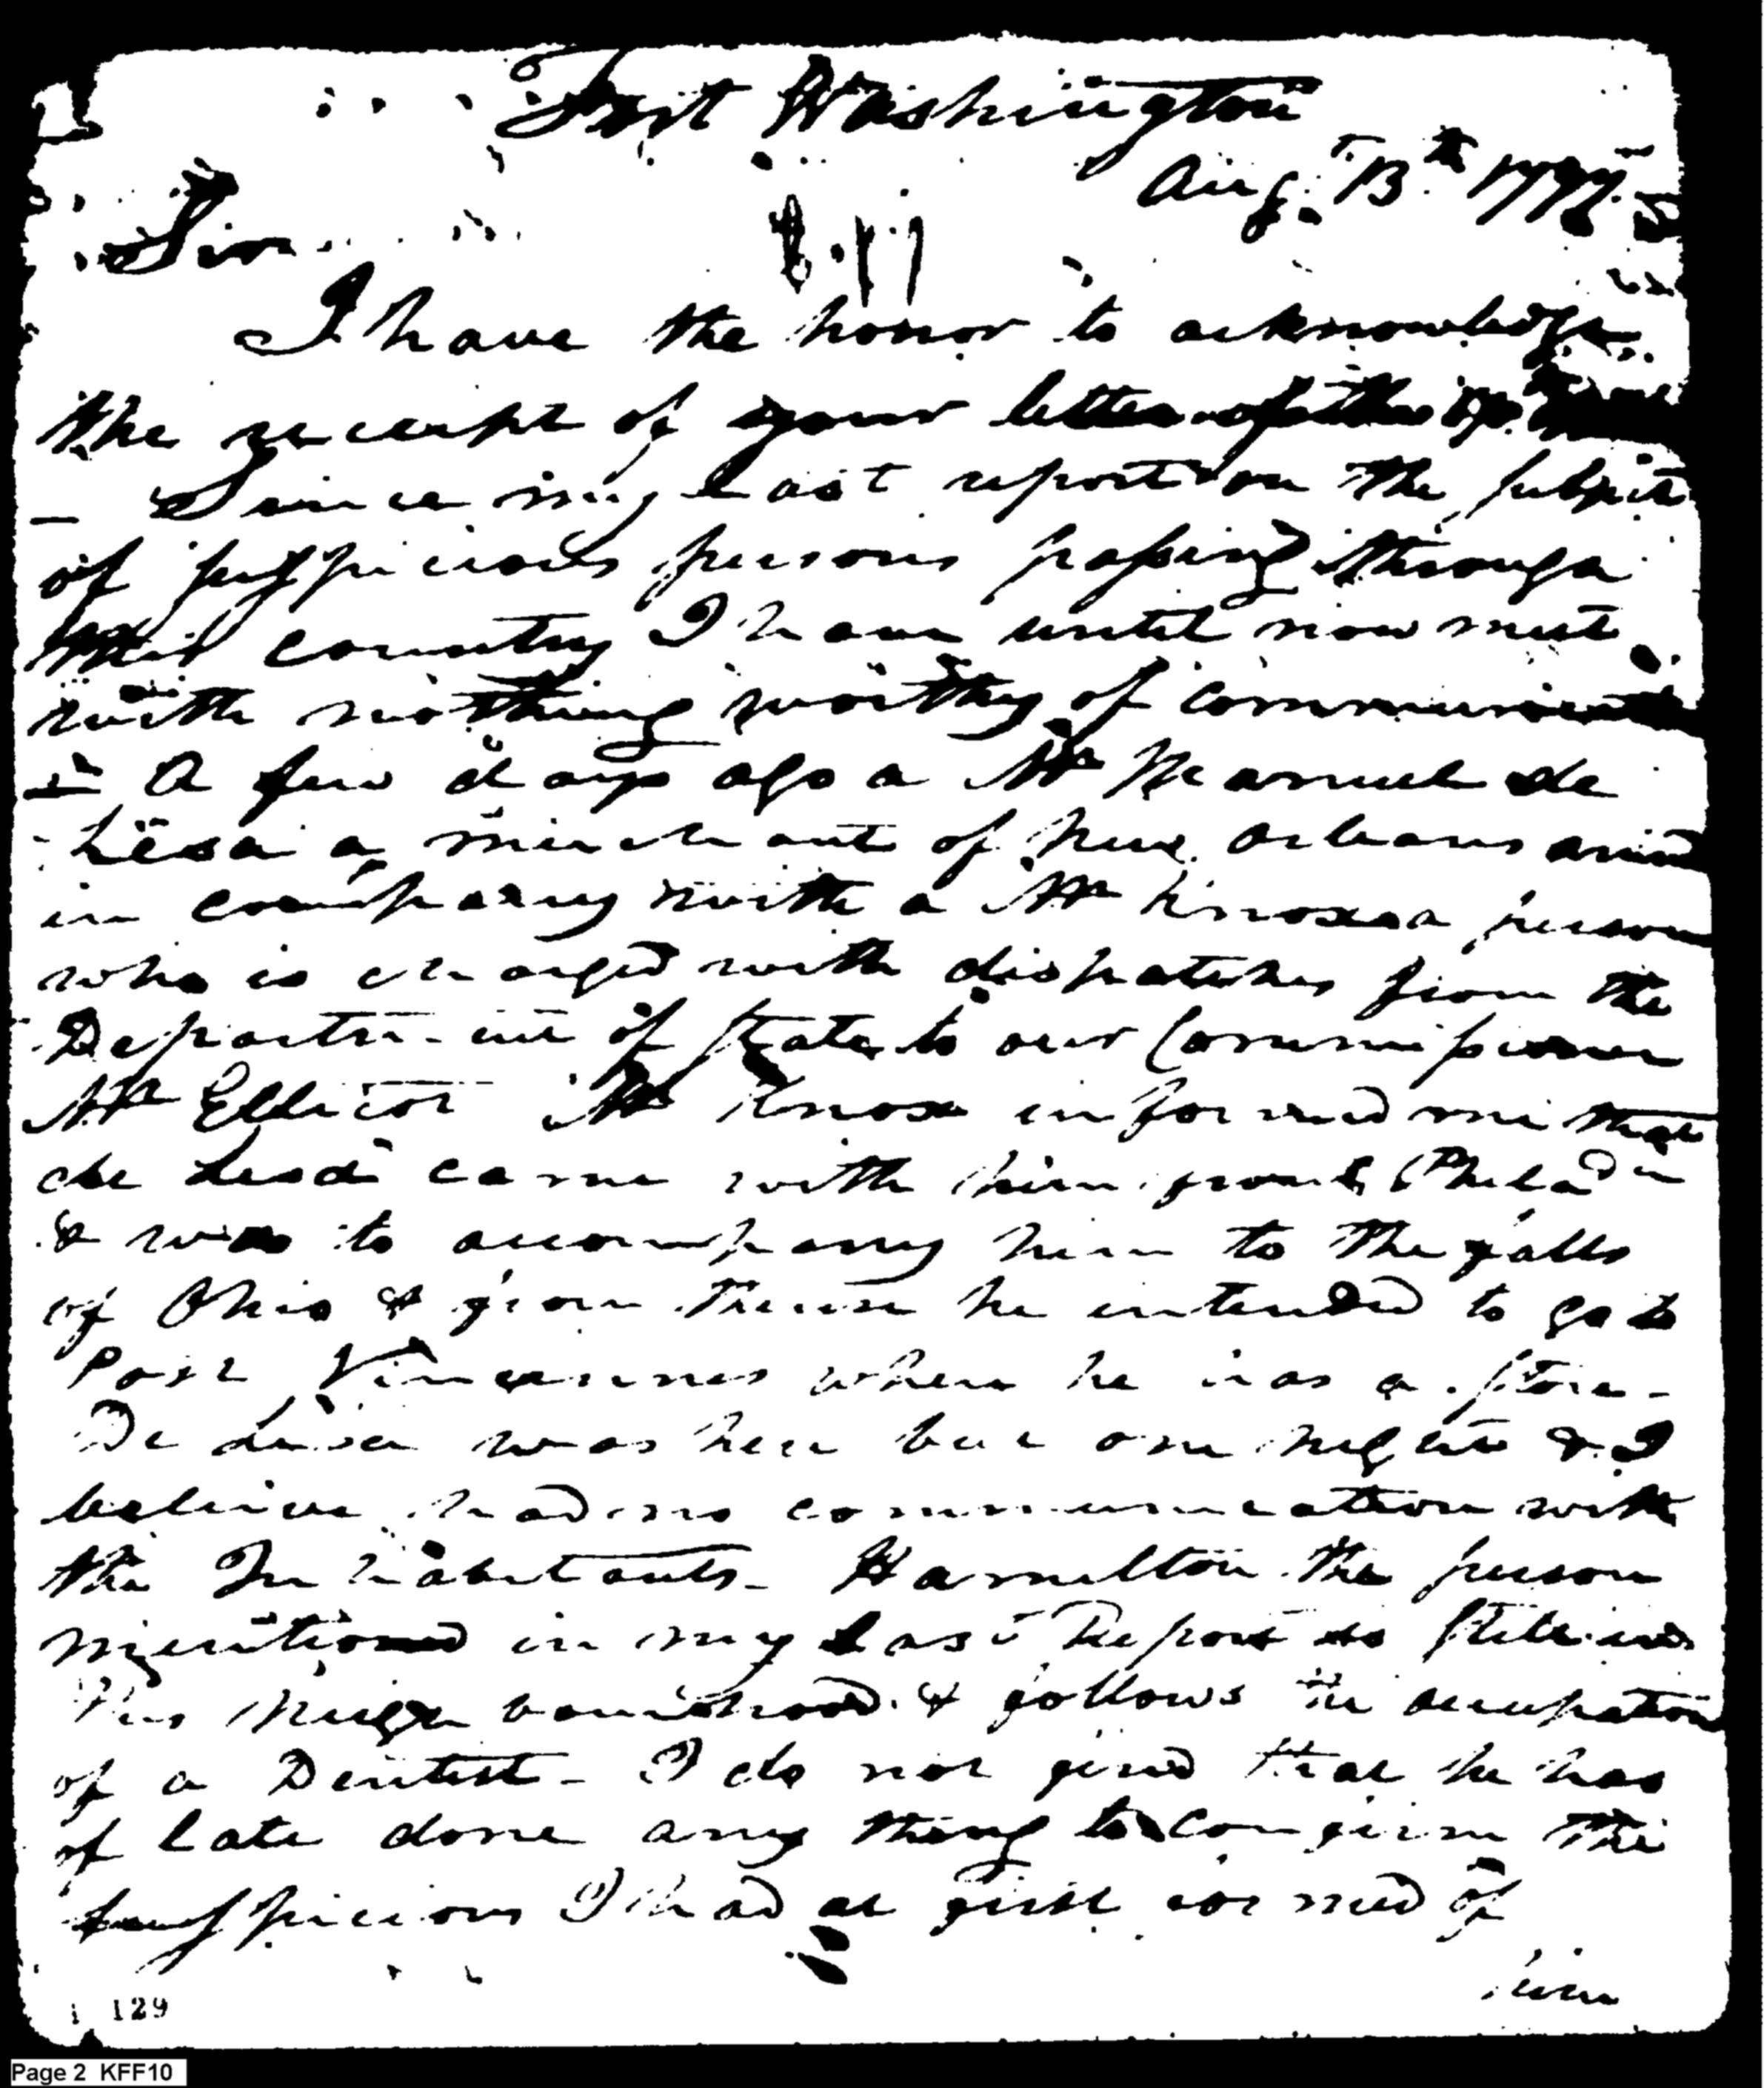 Fort Washington
Aug. 13th 1797
Sir
I have the honor to acknowledge
the receipt of your letter of the
— Since my last report on the subject
of suspicious persons passing through
this country I have until now meet
with nothing worthy of communicat
A few days ago a Mr Manuel de
Lesa a merchant of New Orleans arrived
in company with a Mr Knox a person
who is charged with dispatches from the
Department of State to our Commissioner
Mr Ellicot Mr Knox informed me that
de Lesa came with him from Philada
& was to accompany him to the falls
of Ohio & from thence he intended to go to
Post Vincennes where he has a store -
De Lesa was here but one night & I
believe had no communication with
the Inhabitants - Hamilton the person
mentioned in my last Report is still in
this Neighbourhood & follows the occupation
of a Dentist - I do not find that he has
of late done any thing to confirm the
suspicions I had at first formed of
him
129
Page 2 KFF10